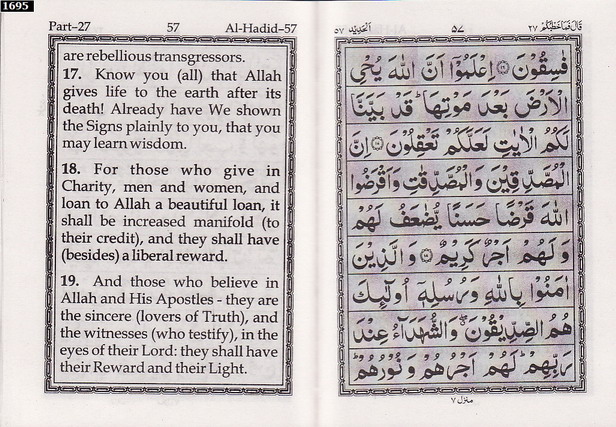 1695
Part–27 57 Al-Hadid–57
are rebellious transgressors.
17. Know you (all) that Allah
gives life to the earth after its
death! Already have We shown
the Signs plainly to you, that you
may learn wisdom.
18. For those who give in
Charity, men and women, and
loan to Allah a beautiful loan, it
shall be increased manifold (to
their credit), and they shall have
(besides) a liberal reward.
19. And those who believe in
Allah and His Apostles - they are
the sincere (lovers of Truth), and
the witnesses (who testify), in the
eyes of their Lord: they shall have
their Reward and their Light.
قَالَ فَمَا خَطْبُكُمْ ٢٧ ٥٧ اَلْحَدِيْد ٥٧
فٰسِقُوْنَ ۝۱۶ اِعْلَمُوْٓا اَنَّ اللّٰهَ يُحْيِ
الْاَرْضَ بَعْدَ مَوْتِهَا ؕ قَدْ بَيَّنَّا
لَكُمُ الْاٰيٰتِ لَعَلَّكُمْ تَعْقِلُوْنَ ۝۱۷ اِنَّ
الْمُصَّدِّقِيْنَ وَالْمُصَّدِّقٰتِ وَاَقْرَضُوا
اللّٰهَ قَرْضًا حَسَنًا يُّضٰعَفُ لَهُمْ
وَلَهُمْ اَجْرٌ كَرِيْمٌ ۝۱۸ وَالَّذِيْنَ
اٰمَنُوْا بِاللّٰهِ وَرُسُلِهٖٓ اُولٰٓئِكَ
هُمُ الصِّدِّيْقُوْنَ ۖ وَالشُّهَدَآءُ عِنْدَ
رَبِّهِمْ ؕ لَهُمْ اَجْرُهُمْ وَنُوْرُهُمْ ؕ
منزل ٧